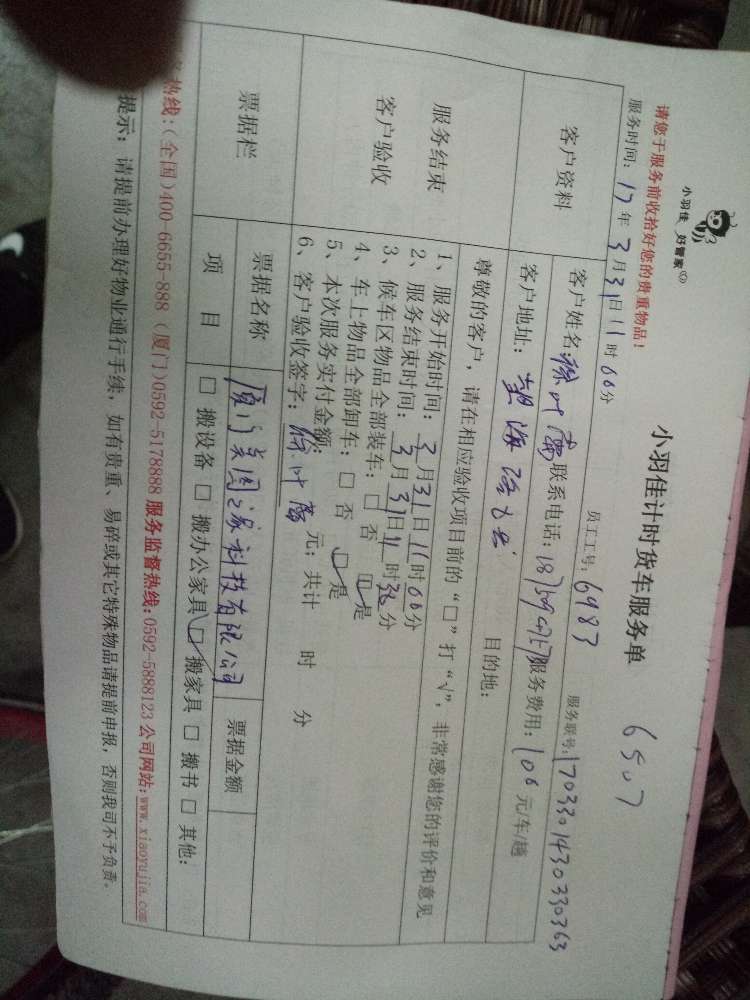 小羽佳 好管家
小羽佳计时货车服务单 6507
请您于服务前收拾好您的贵重物品!
员工工号: 6983
服务时间: 17 年 3 月 31 日 11 时 00 分
服务联号: 1703301430330363
客户资料
客户姓名: 联系电话: 服务费用: 100 元/车/趟
客户地址: 望海路 目的地:
服务结束
客户验收
尊敬的客户, 请在相应验收项目前的“□”打“√”, 非常感谢您的评价和意见
1、服务开始时间: 3 月 31 日 11 时 00 分
2、服务结束时间: 3 月 31 日 11 时 30 分
3、候车区物品全部装车: □ 否 ☑ 是
4、车上物品全部卸车: □ 否 ☑ 是
5、本次服务实付金额: 元; 共计 时 分
6、客户验收签字:
票据栏
票据名称 厦门美图之家科技有限公司 票据金额
项 目 □ 搬设备 □ 搬办公家具 ☑ 搬家具 □ 搬书 □ 其他:
热线: (全国)400-6655-888 (厦门)0592-5178888 服务监督热线: 0592-5888123 公司网站: www.xiaoyujia.com
提示: 请提前办理好物业通行手续, 如有贵重、易碎或其它特殊物品请提前申报, 否则我司不予负责。